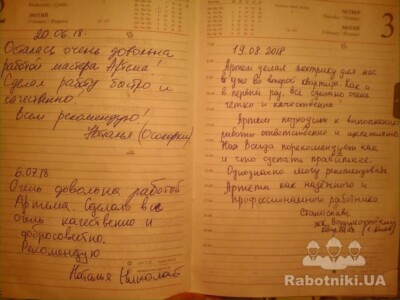 20.06.18
Осталась очень довольна
работой мастера Артёма!
Сделал работу быстро и
качественно!
Всем рекомендую!
Наталья (Осокорки)
6.07.18
Очень довольна работой
Артема. Сделало все
очень качественно и
добросовестно.
Рекомендую
Наталья Николаев
3
19.08.2018
Артём делал электрику для нас
в уже во второй квартире. Как и
в первый раз, все сделано очень
четко и качественно.
Артем подходит к выполнению
работы ответственно и щепетильно.
Всегда порекомендует как
и что сделать правильнее.
Однозначно могу рекомендовать
Артёма как надёжного и
профессионального работника
Станислав
ЖК
Rabotniki.UA